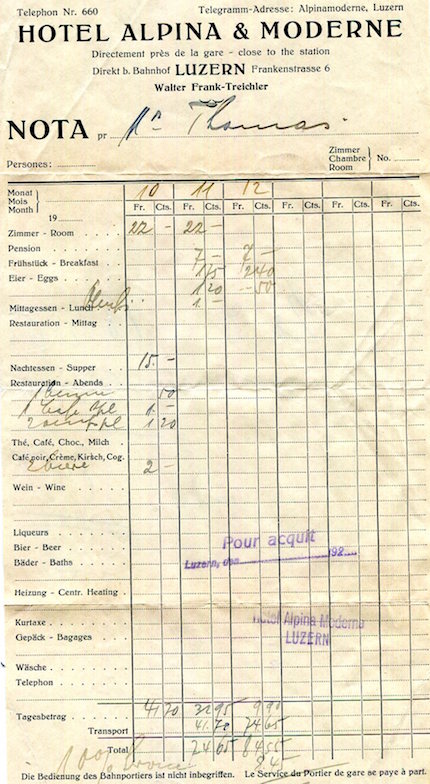 Telephon Nr. 660 Telegramm-Adresse: Alpinamoderne, Luzern
HOTEL ALPINA & MODERNE
Directement près de la gare - close to the station
Direkt b. Bahnhof LUZERN Frankenstrasse 6
Walter Frank-Treichler
NOTA pr Mr Thomas.
Persones: Zimmer Chambre Room No.
Monat Mois Month 10 11 12
19 Fr. Cts. Fr. Cts. Fr. Cts. Fr. Cts. Fr. Cts. Fr. Cts. Fr. Cts.
Zimmer - Room 22 - 22 -
Pension
Frühstück - Breakfast 7 - 7 -
Eier - Eggs 2 40
1 20 - 50
Mittagessen - Lunch 1 -
Restauration - Mittag
Nachtessen - Supper 15. -
Restauration - Abends
50
1 Café 1 -
1 20
Thé, Café, Choc., Milch
Café noir, Crème, Kirsch, Cog.
2 bière 2 -
Wein - Wine
Liqueurs
Pour acquit
Bier - Beer
Luzern, den 192
Bäder - Baths
Heizung - Centr. Heating
Kurtaxe
Hotel Alpina Moderne
Gepäck - Bagages
LUZERN
Wäsche
Telephon
Tagesbetrag 41 70 32 95 9 90
Transport 41.70 74 65
Total 74 65 84 55
10%
Die Bedienung des Bahnportiers ist nicht inbegriffen. Le Service du Portier de gare se paye à part.